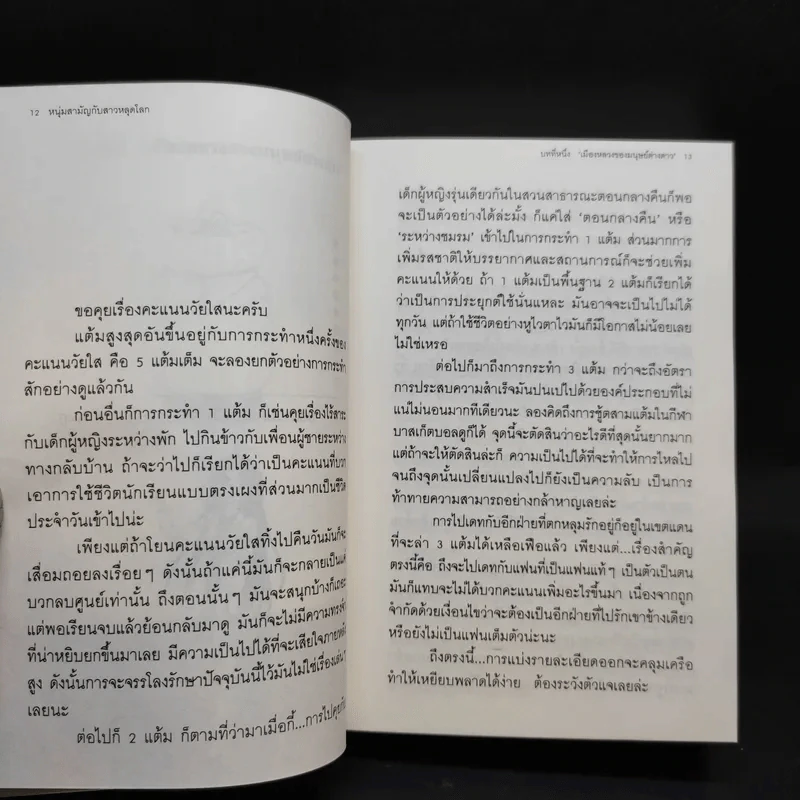 12 หนุ่มสามัญกับสาวหลุดโลก
ขอคุยเรื่องคะแนนวัยใสนะครับ
แต้มสูงสุดอันขึ้นอยู่กับการกระทำหนึ่งครั้งของ
คะแนนวัยใส คือ 5 แต้มเต็ม จะลองยกตัวอย่างการกระทำ
สักอย่างดูแล้วกัน
ก่อนอื่นก็การกระทำ 1 แต้ม ก็เช่นคุยเรื่องไร้สาระ
กับเด็กผู้หญิงระหว่างพัก ไปกินข้าวกับเพื่อนผู้ชายระหว่าง
ทางกลับบ้าน ถ้าจะว่าไปก็เรียกได้ว่าเป็นคะแนนที่บวก
เอาการใช้ชีวิตนักเรียนแบบตรงเผงที่ส่วนมากเป็นชีวิต
ประจำวันเข้าไปน่ะ
เพียงแต่ถ้าโยนคะแนนวัยใสทิ้งไปคืนวันมันก็จะ
เสื่อมถอยลงเรื่อยๆ ดังนั้นถ้าแค่นี้มันก็จะกลายเป็นแค่
บวกลบศูนย์เท่านั้น ถึงตอนนั้นๆ มันจะสนุกบ้างก็เถอะ
แต่พอเรียนจบแล้วย้อนกลับมาดู มันก็จะไม่มีความทรงจำ
ที่น่าหยิบยกขึ้นมาเลย มีความเป็นไปได้ที่จะเสียใจภายหลัง
สูง ดังนั้นการจะจรรโลงรักษาปัจจุบันนี้ไว้มันไม่ใช่เรื่องเด่น
เลยนะ
ต่อไปก็ 2 แต้ม ก็ตามที่ว่ามาเมื่อกี้...การไปคุยกับ
บทที่หนึ่ง 'เมืองหลวงของมนุษย์ต่างดาว' 13
เด็กผู้หญิงรุ่นเดียวกันในสวนสาธารณะตอนกลางคืนก็พอ
จะเป็นตัวอย่างได้ล่ะมั้ง ก็แค่ใส่ 'ตอนกลางคืน' หรือ
'ระหว่างชมรม' เข้าไปในการกระทำ 1 แต้ม ส่วนมากการ
เพิ่มรสชาติให้บรรยากาศและสถานการณ์ก็จะช่วยเพิ่ม
คะแนนให้ด้วย ถ้า 1 แต้มเป็นพื้นฐาน 2 แต้มก็เรียกได้
ว่าเป็นการประยุกต์ใช้นั่นแหละ มันอาจจะเป็นไปไม่ได้
ทุกวัน แต่ถ้าใช้ชีวิตอย่างหูไวตาไวมันก็มีโอกาสไม่น้อยเลย
ไม่ใช่เหรอ
ต่อไปก็มาถึงการกระทำ 3 แต้ม กว่าจะถึงอัตรา
การประสบความสำเร็จมันปนเปไปด้วยองค์ประกอบที่ไม่
แน่ไม่นอนมากทีเดียวนะ ลองคิดถึงการชู้ตสามแต้มในกีฬา
บาสเก็ตบอลดูก็ได้ จุดนี้จะตัดสินว่าอะไรดีที่สุดนั้นยากมาก
แต่ถ้าจะให้ตัดสินล่ะก็ ความเป็นไปได้ที่จะทำให้การไหลไป
จนถึงจุดนั้นเปลี่ยนแปลงไปก็ยังเป็นความลับ เป็นการ
ท้าทายความสามารถอย่างกล้าหาญเลยล่ะ
การไปเดทกับอีกฝ่ายที่ตกหลุมรักอยู่ก็อยู่ในเขตแดน
ที่จะล่า 3 แต้มได้เหลือเฟือแล้ว เพียงแต่...เรื่องสำคัญ
ตรงนี้คือ ถึงจะไปเดทกับแฟนที่เป็นแฟนแท้ๆ เป็นตัวเป็นตน
มันก็แทบจะไม่ได้บวกคะแนนเพิ่มอะไรขึ้นมา เนื่องจากถูก
จำกัดด้วยเงื่อนไขว่าจะต้องเป็นอีกฝ่ายที่ไปรักเขาข้างเดียว
หรือยังไม่เป็นแฟนเต็มตัวน่ะนะ
ถึงตรงนี้...การแบ่งรายละเอียดออกจะคลุมเครือ
ทำให้เหยียบพลาดได้ง่าย ต้องระวังตัวแจเลยล่ะ